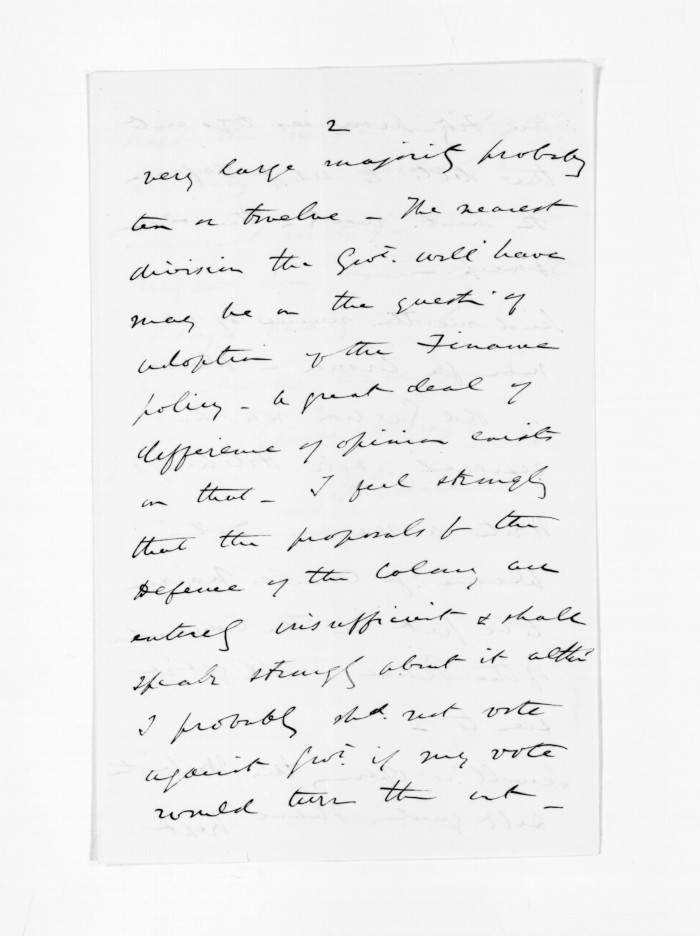 2
very large majority probably
ten or twelve - The nearest
division the Govt. will have
may be on the questn of
adoption of the Finance
policy - a great deal of
difference of opinion exists
on that - I feel strongly
that the proposals for the
Defence of the Colony are
entirely insufficient & shall
speak strongly about it altho'
I probably shd. not vote
against Govt. if my vote
would turn the